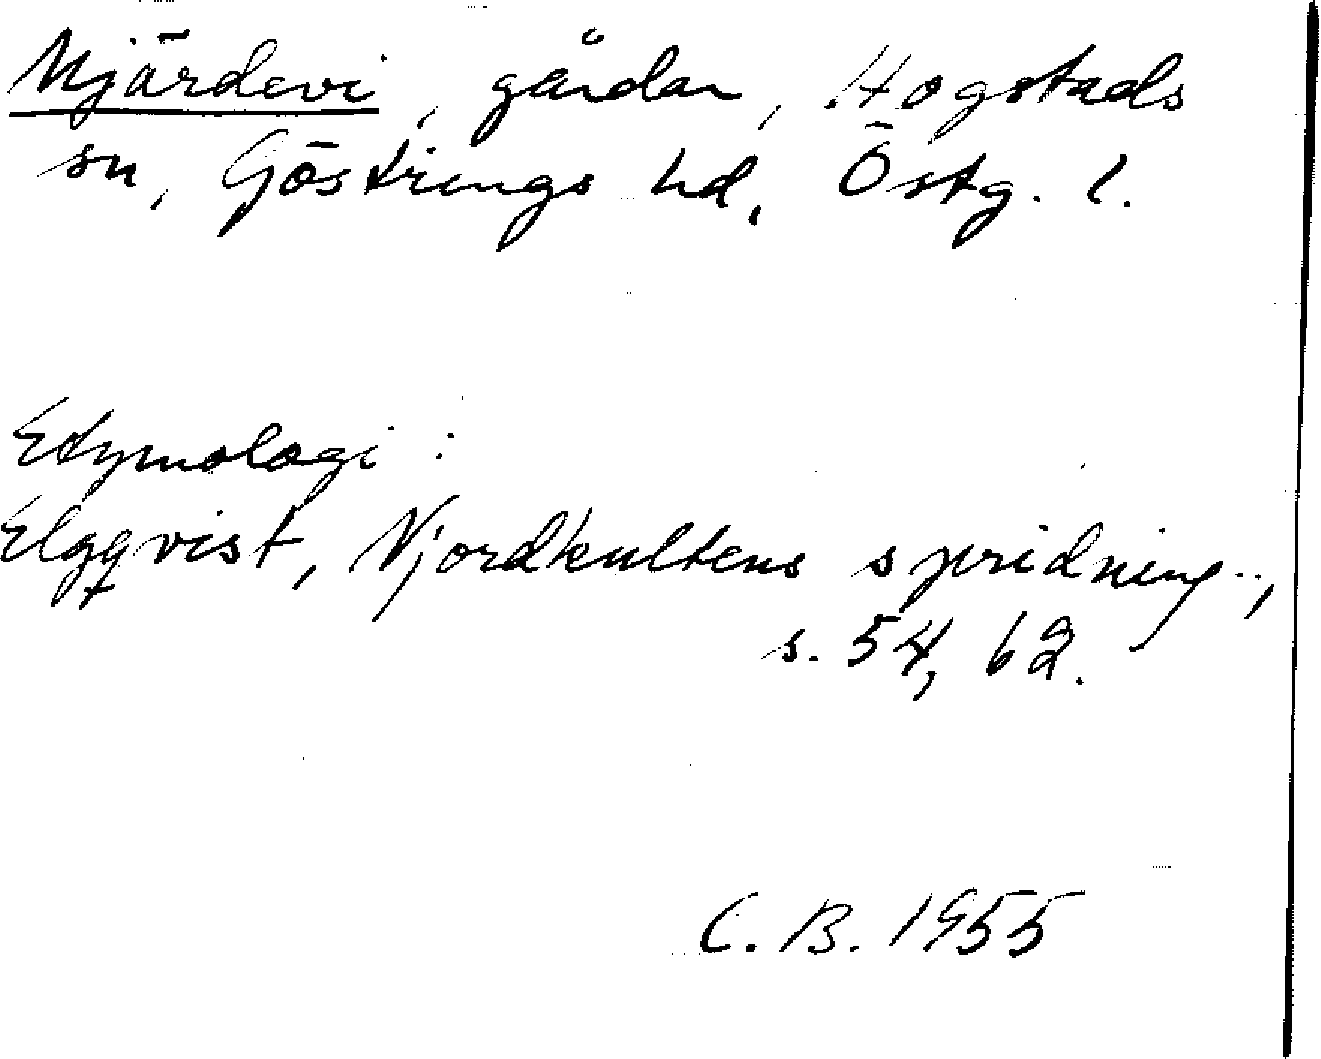 Mjärdevi, gårdar, Hogstads
sn, Göstrings hd, Östg. l.
Etymologi:
Elgqvist, Njordkultens spridning..,
s. 54, 62.
C. B. 1955